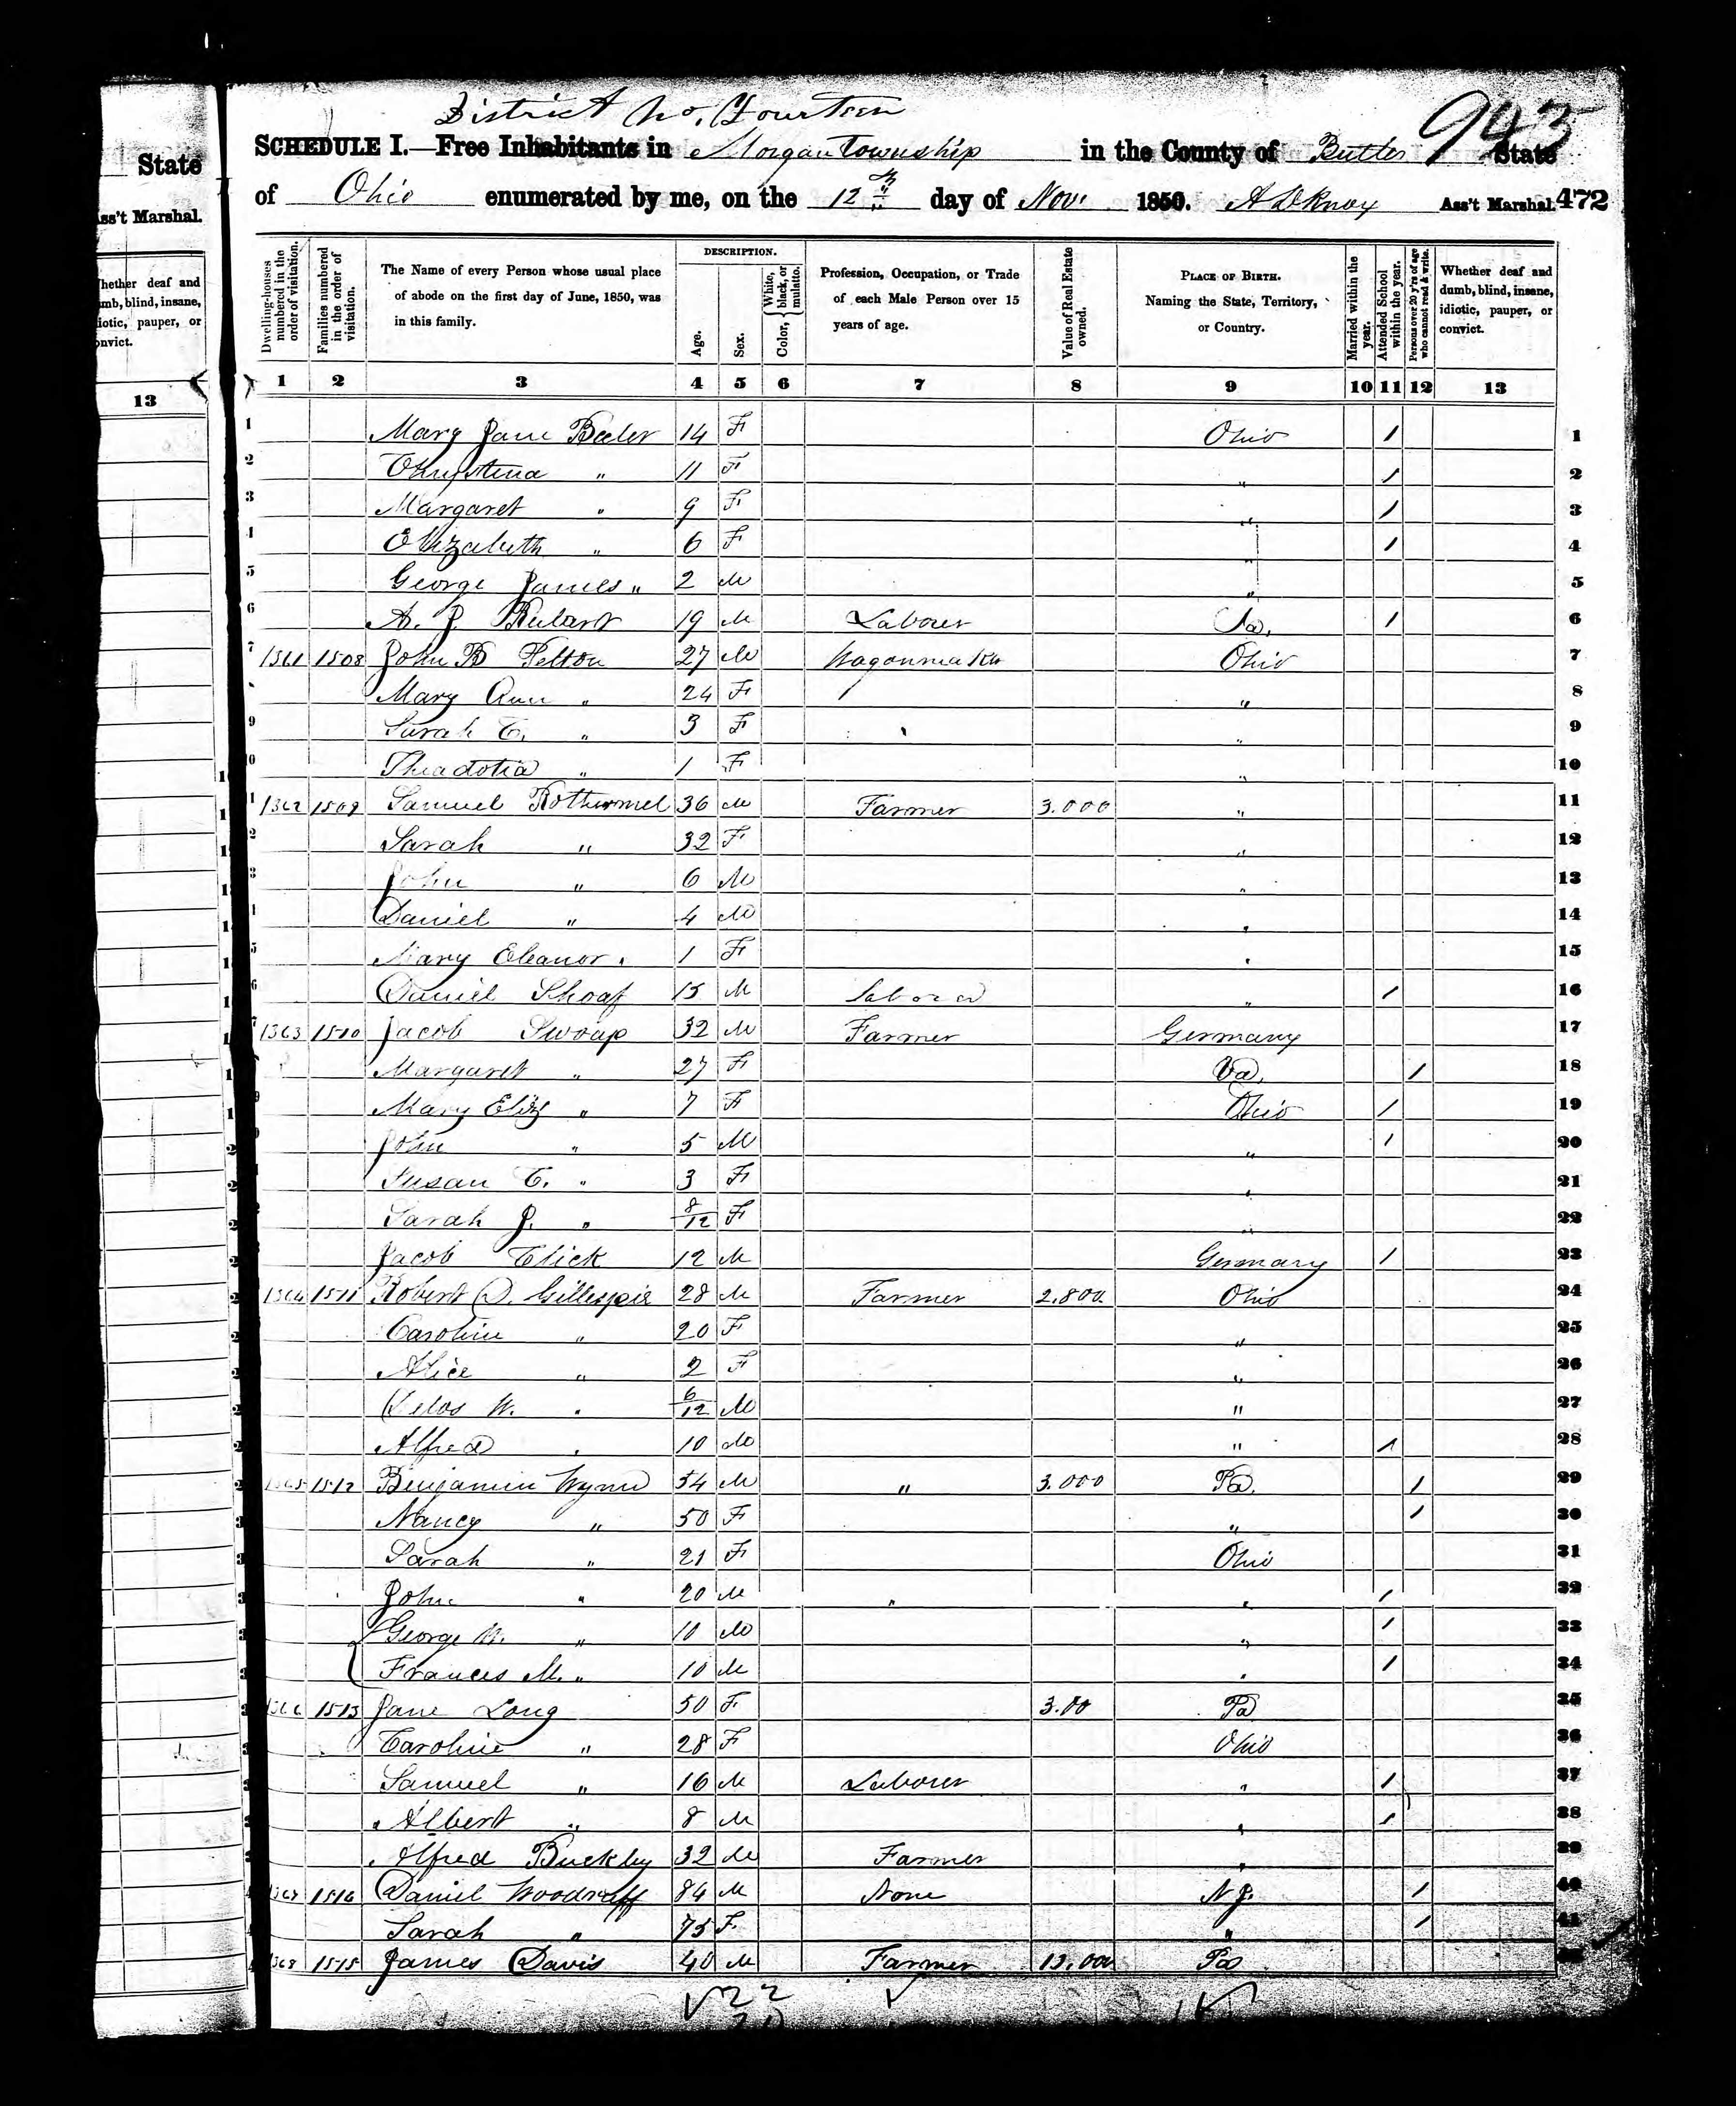 District No. Fourteen
943
SCHEDULE I.—Free Inhabitants in Morgan Township in the County of Butler State
of Ohio enumerated by me, on the 12th day of Nov. 1850. A D Knox Ass't Marshal. 472
Dwelling-houses numbered in the order of visitation.
Families numbered in the order of visitation.
The Name of every Person whose usual place of abode on the first day of June, 1850, was in this family.
DESCRIPTION.
Age.
Sex.
Color, { White, black, or mulatto.
Profession, Occupation, or Trade of each Male Person over 15 years of age.
Value of Real Estate owned.
PLACE OF BIRTH. Naming the State, Territory, or Country.
Married within the year.
Attended School within the year.
Persons over 20 y'rs of age who cannot read & write.
Whether deaf and dumb, blind, insane, idiotic, pauper, or convict.
1 2 3 4 5 6 7 8 9 10 11 12 13
1 Mary Jane Beeler 14 F Ohio / 1
2 Chrystena " 11 F " / 2
3 Margaret " 9 F " / 3
4 Elizabeth " 6 F " / 4
5 George James " 2 M " 5
6 A. J. 19 M Laborer / 6
7 1361 1508 John B Pelton 27 M Wagonmaker Ohio 7
Mary Ann " 24 F " 8
9 Sarah C. " 3 F " 9
Theadotia " 1 F " 10
1362 1509 Samuel Rothermel 36 M Farmer 3.000 " 11
Sarah " 32 F " 12
John " 6 M " 13
Daniel " 4 M " 14
Mary Eleanor " 1 F " 15
Daniel Shoaf 15 M Laborer " / 16
1363 1510 Jacob Swoap 32 M Farmer Germany 17
Margaret " 27 F Va. / 18
Mary Eliz " 7 F Ohio / 19
John " 5 M " / 20
Susan C. " 3 F " 21
Sarah J. " 8/12 F " 22
Jacob Click 12 M Germany / 23
1364 1511 Robert D. Gillespie 28 M Farmer 2.800 Ohio 24
Caroline " 20 F " 25
Alice " 2 F " 26
Delos W. " 6/12 M " 27
Alfred " 10 M " / 28
1365 1512 Benjamin Wynn 54 M " 3.000 Pa. / 29
Nancy " 50 F " / 30
Sarah " 21 F Ohio 31
John " 20 M " " / 32
George W. " 10 M " / 33
Frances M. " 10 M " / 34
1366 1513 Jane Long 50 F 3.00 Pa 35
Caroline " 28 F Ohio 36
Samuel " 16 M Laborer " / 37
Albert " 8 M " / 38
Alfred Buckley 32 M Farmer " 39
1367 1514 Daniel Woodruff 84 M None N J. / 40
Sarah " 75 F " / 41
1368 1515 James Davis 40 M Farmer Pa
State
Ass't Marshal.
13